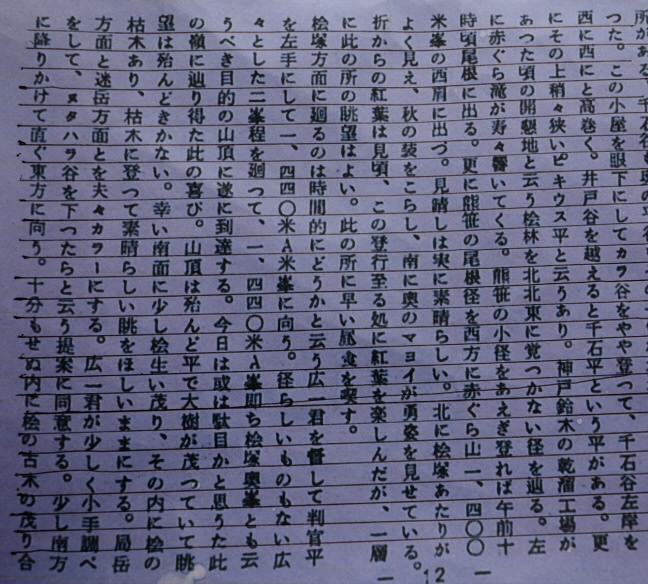 所がある。千石谷も奥の平
った。この小屋を眼下にしてカラ谷をやや登って、千石谷左岸を
西に西にと高巻く。井戸谷を越えると千石平という平がある。更
にその上稍々狭いピキウス平と云うあり。神戸鈴木の乾溜工場が
あつた頃の開懇地と云う桧林を北北東に覚つかない径を辿る。左
に赤ぐら滝が寿々響いてくる。熊笹の小径をあえぎ登れば午前十
時頃尾根に出る。更に熊笹の尾根径を西方に赤ぐら山一、四〇〇
米峯の西肩に出づ。見晴しは実に素晴らしい。北に桧塚あたりが
よく見え、秋の装をこらし、南に奥のマヨイが勇姿を見せている。
折からの紅葉は見頃、この登行至る処に紅葉を楽しんだが、一層
に此の所の眺望はよい。此の所に早い昼食を喫す。
桧塚方面に廻るのは時間的にどうかと云う広一君を督して判官平
を左手にして一、四四〇米A米峯に向う。径らしいものもない広
々とした二峯程を廻って、一、四四〇米A峯即ち桧塚奥峯とも云
うべき目的の山頂に遂に到達する。今日は或は駄目かと思うた此
の嶺に辿り得た此の喜び。山頂は殆んど平で大樹が茂つていて眺
望は殆んどきかない。幸い南面に少し桧生い茂り、その内に桧の
枯木あり、枯木に登って素晴らしい眺をほしいままにする。局岳
方面と迷岳方面とを夫々カラーにする。広一君が少しく小手調べ
をして、ヌタハラ谷を下ったらと云う提案に同意する。少し南方
に降りかけて直ぐ東方に向う。十分もせぬ内に桧の古木の茂り合
— 12 —